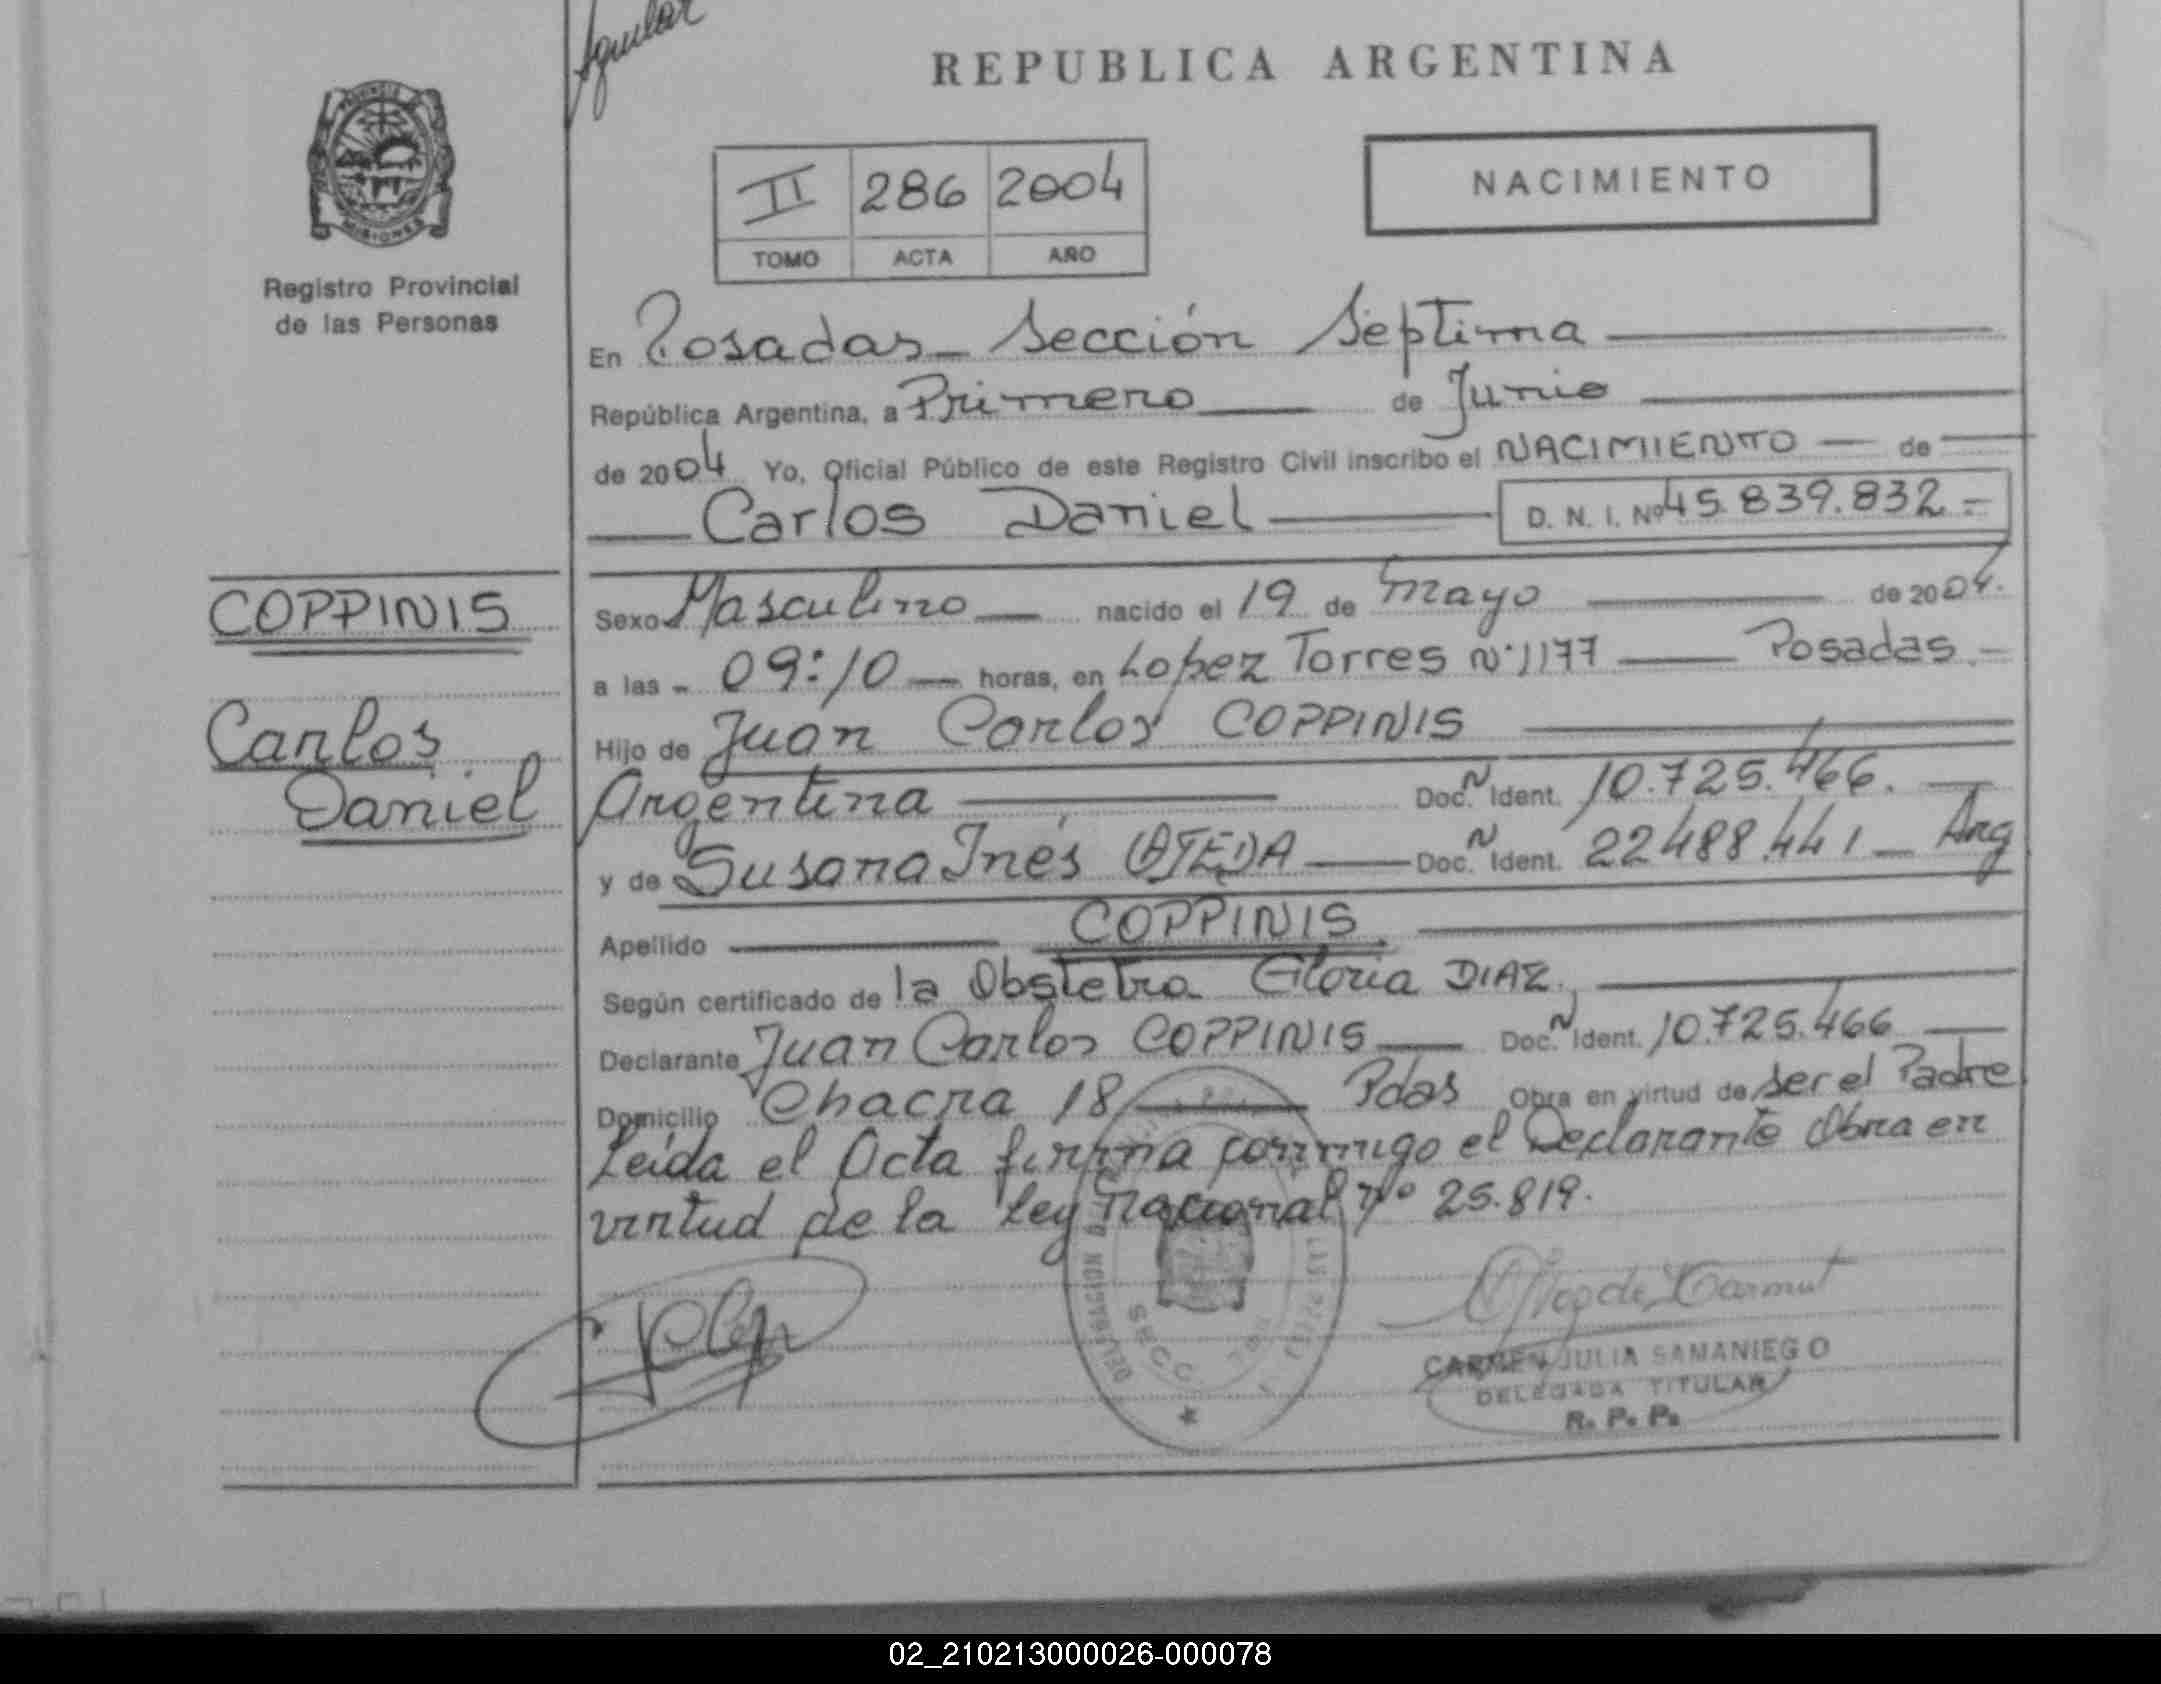 Aguilar
REPUBLICA ARGENTINA
PROVINCIA
MISIONES
Registro Provincial
de las Personas
II 286 2004
TOMO ACTA AÑO
NACIMIENTO
En Posadas - Sección Septima
República Argentina, a Primero de Junio
de 2004 Yo, Oficial Público de este Registro Civil inscribo el NACIMIENTO de
Carlos Daniel D. N. I. Nº 45.839.832.=
COPPINIS
Carlos
Daniel
Sexo Masculino nacido el 19 de Mayo de 2004.
a las - 09:10 horas, en Lopez Torres Nº 1177 Posadas.-
Hijo de Juan Carlos COPPINIS
Argentina Doc.N Ident. 10.725.466.
y de Susana Inés OJEDA Doc.N Ident. 22488.441 - Arg
Apellido COPPINIS.
Según certificado de la Obstetra Gloria DIAZ.
Declarante Juan Carlos COPPINIS Doc.N Ident. 10.725.466
Domicilio Chacra 18 Pdas Obra en virtud de ser el Padre
Leída el Acta firma conmigo el Declarante Obra en
virtud de la Ley Nacional nº 25.819.
CARMEN JULIA SAMANIEGO
DELEGADA TITULAR
R. P. P.
02_210213000026-000078